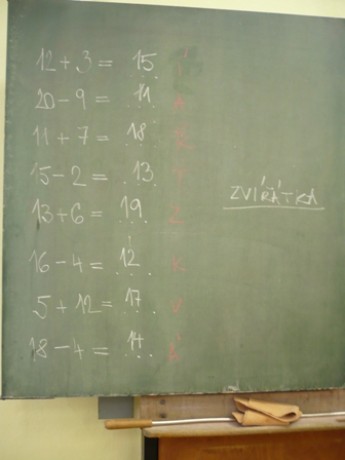 12 + 3 = 15
20 - 9 = 11
11 + 7 = 18
15 - 2 = 13
13 + 6 = 19
16 - 4 = 12
5 + 12 = 17
18 - 4 = 14
ZVÍŘÁTKA